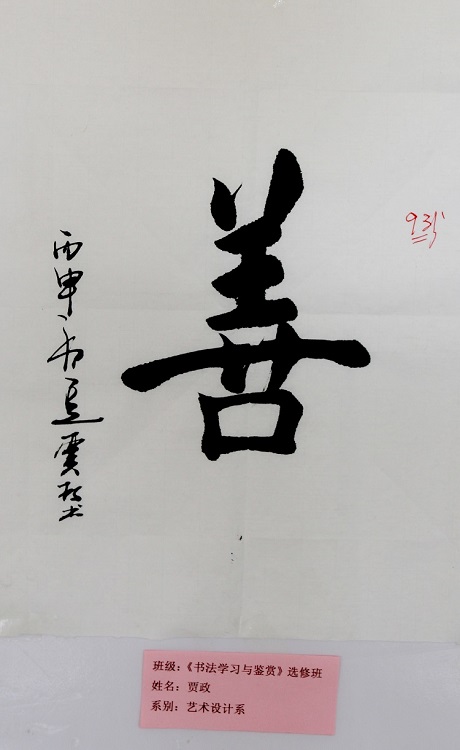 善
93分
丙申
班级：《书法学习与鉴赏》选修班
姓名：贾政
系别：艺术设计系